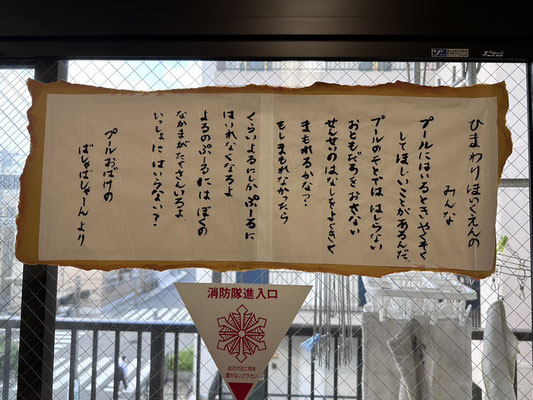 ひまわりほいくえんの
みんな
プールにはいるとき やくそく
してほしいことがあるんだ。
プールのそとでは はしらない
おともだちをおさない
せんせいのはなしをよくきく
まもれるかな？
もしまもれなかったら
くらいよるにしか ぷーるに
はいれなくなるよ
よるのぷーるには ぼくの
なかまがたくさんいるよ
いっしょに はいらない？
プールおばけの
ばしゃばしゃーん より
消防隊進入口